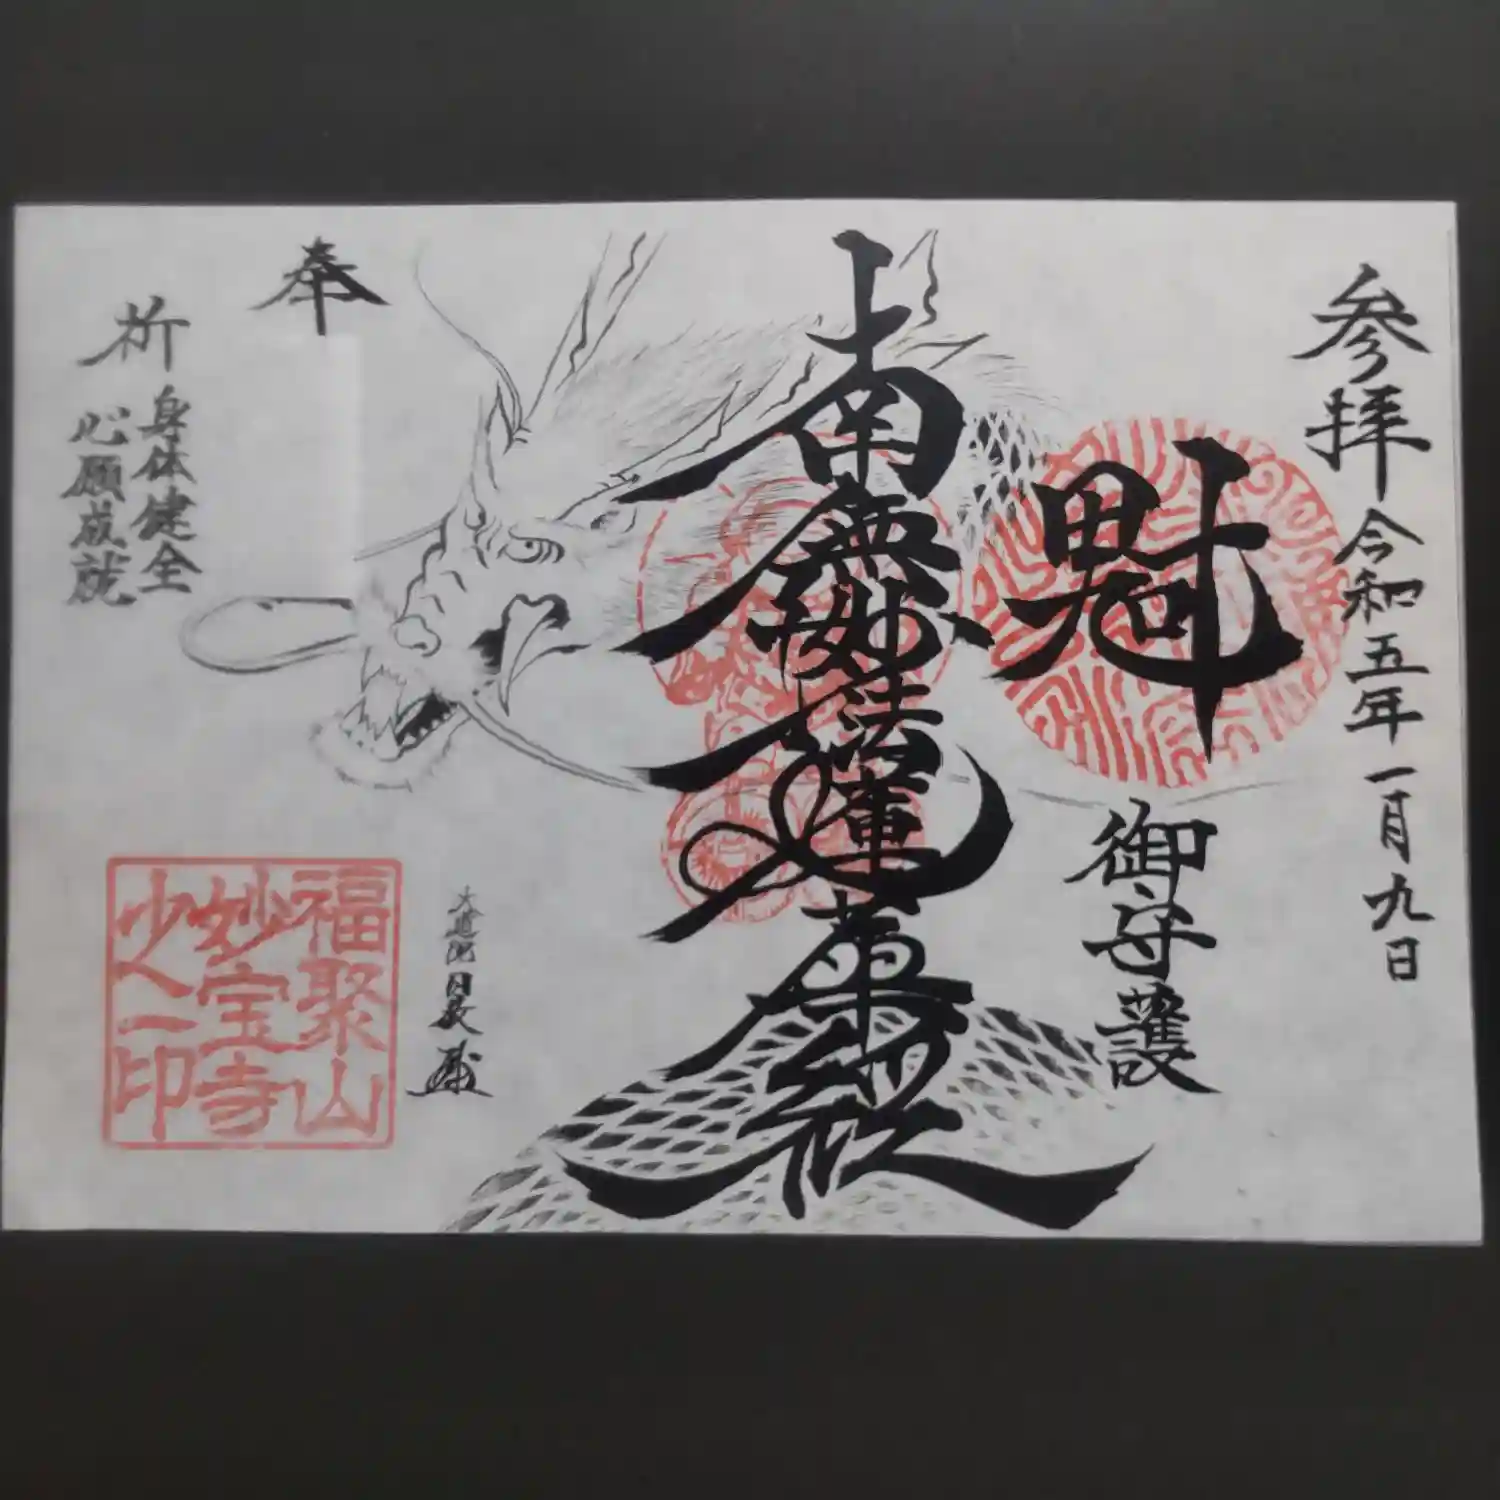 参拝 令和五年一月九日
魁
御守護
南無妙法蓮華経
日長
奉
祈
身体健全
心願成就
福聚山
妙宝寺
之印